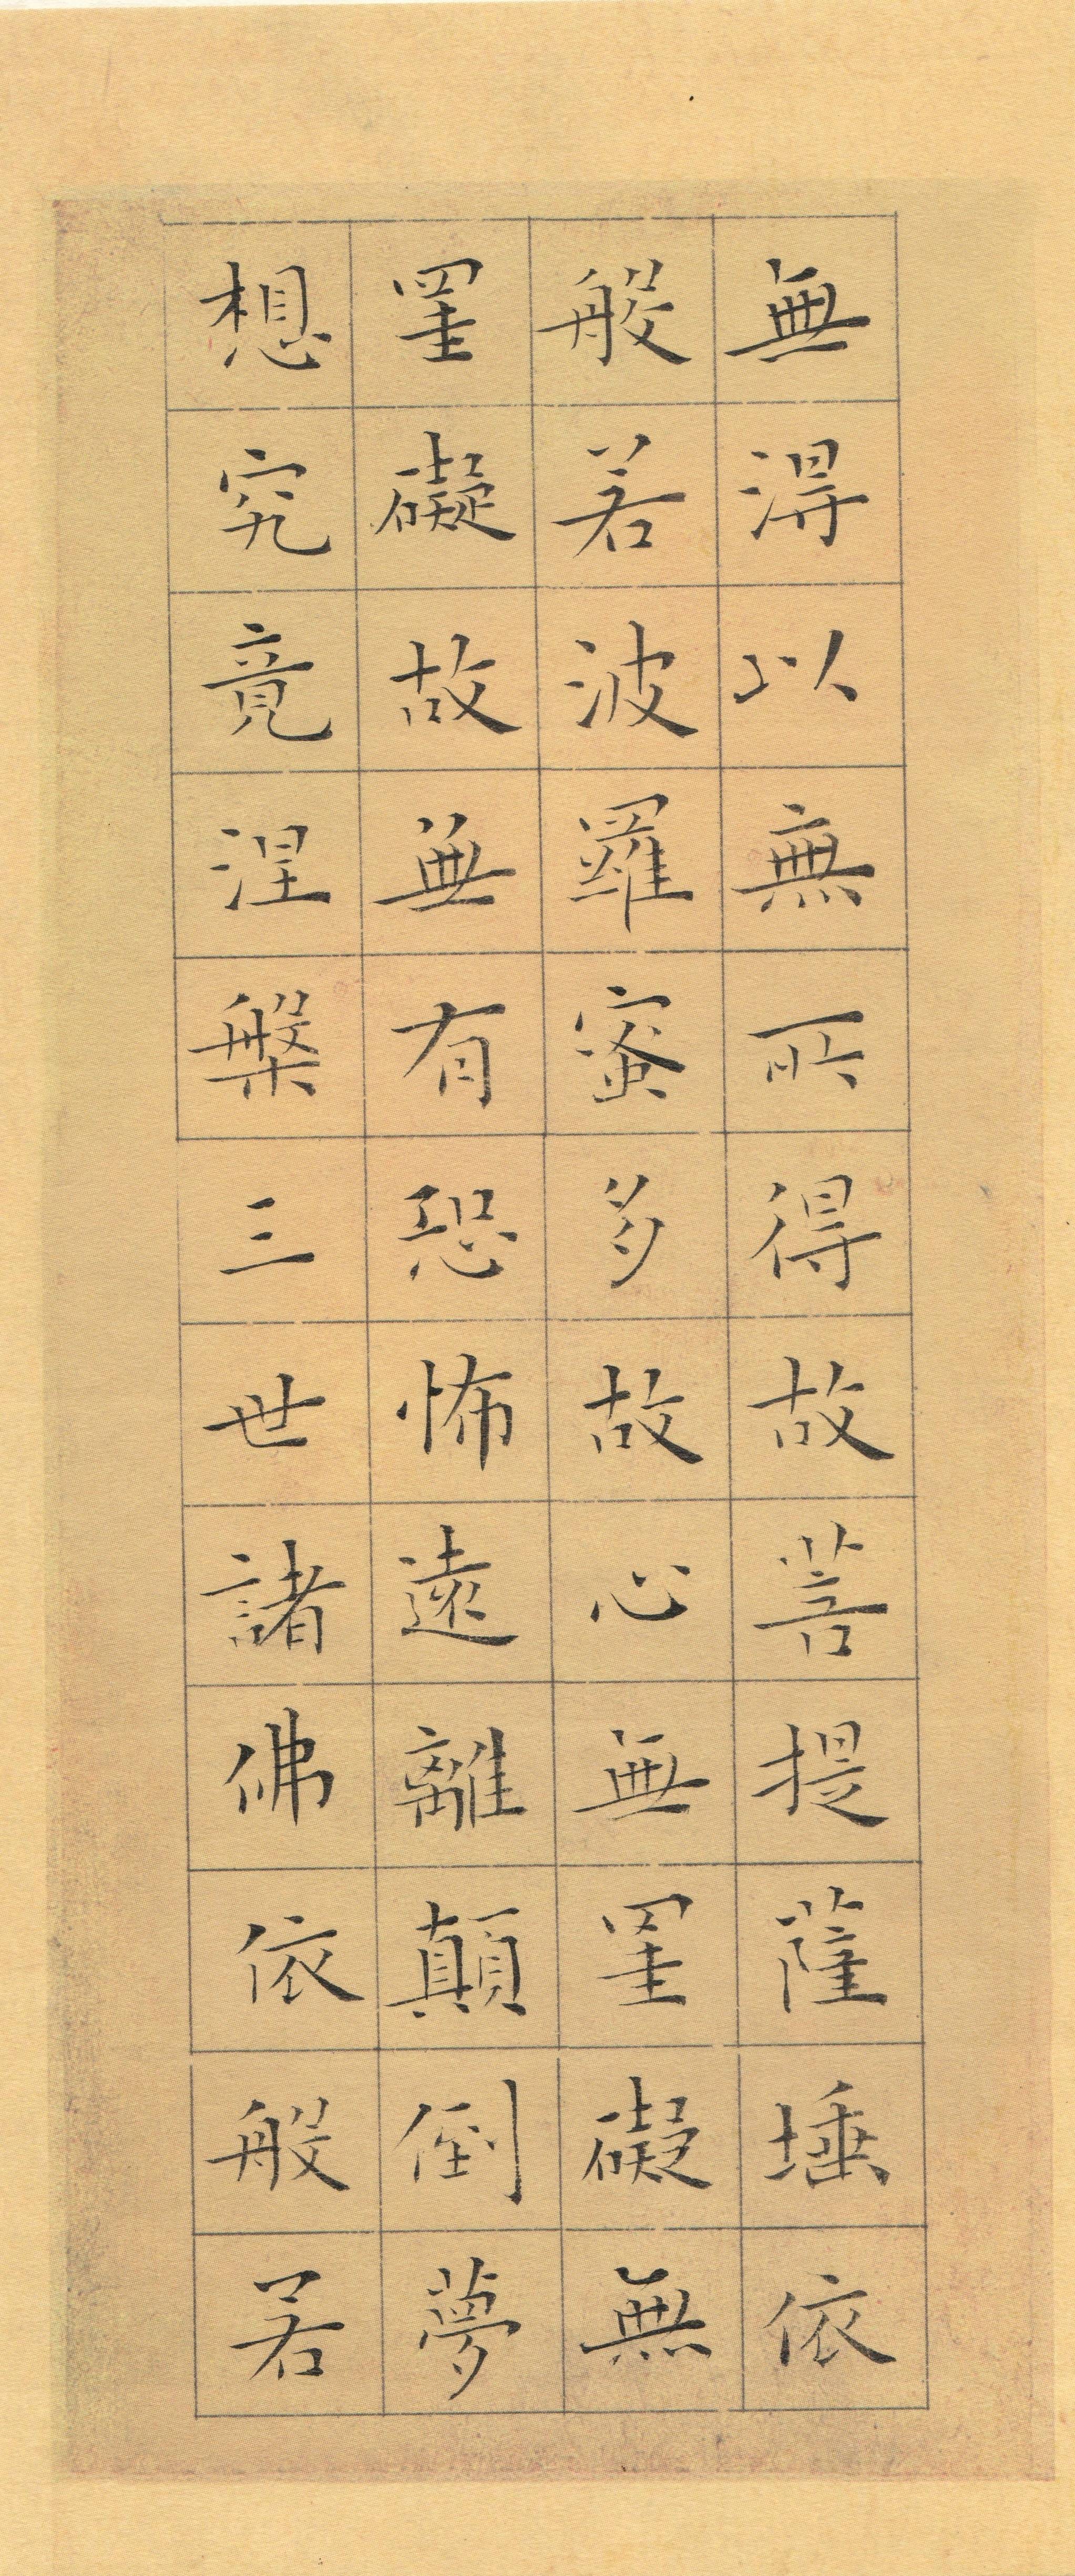 無得以無所得故菩提薩埵依
般若波羅蜜多故心無罣礙無
罣礙故無有恐怖遠離顛倒夢
想究竟涅槃三世諸佛依般若